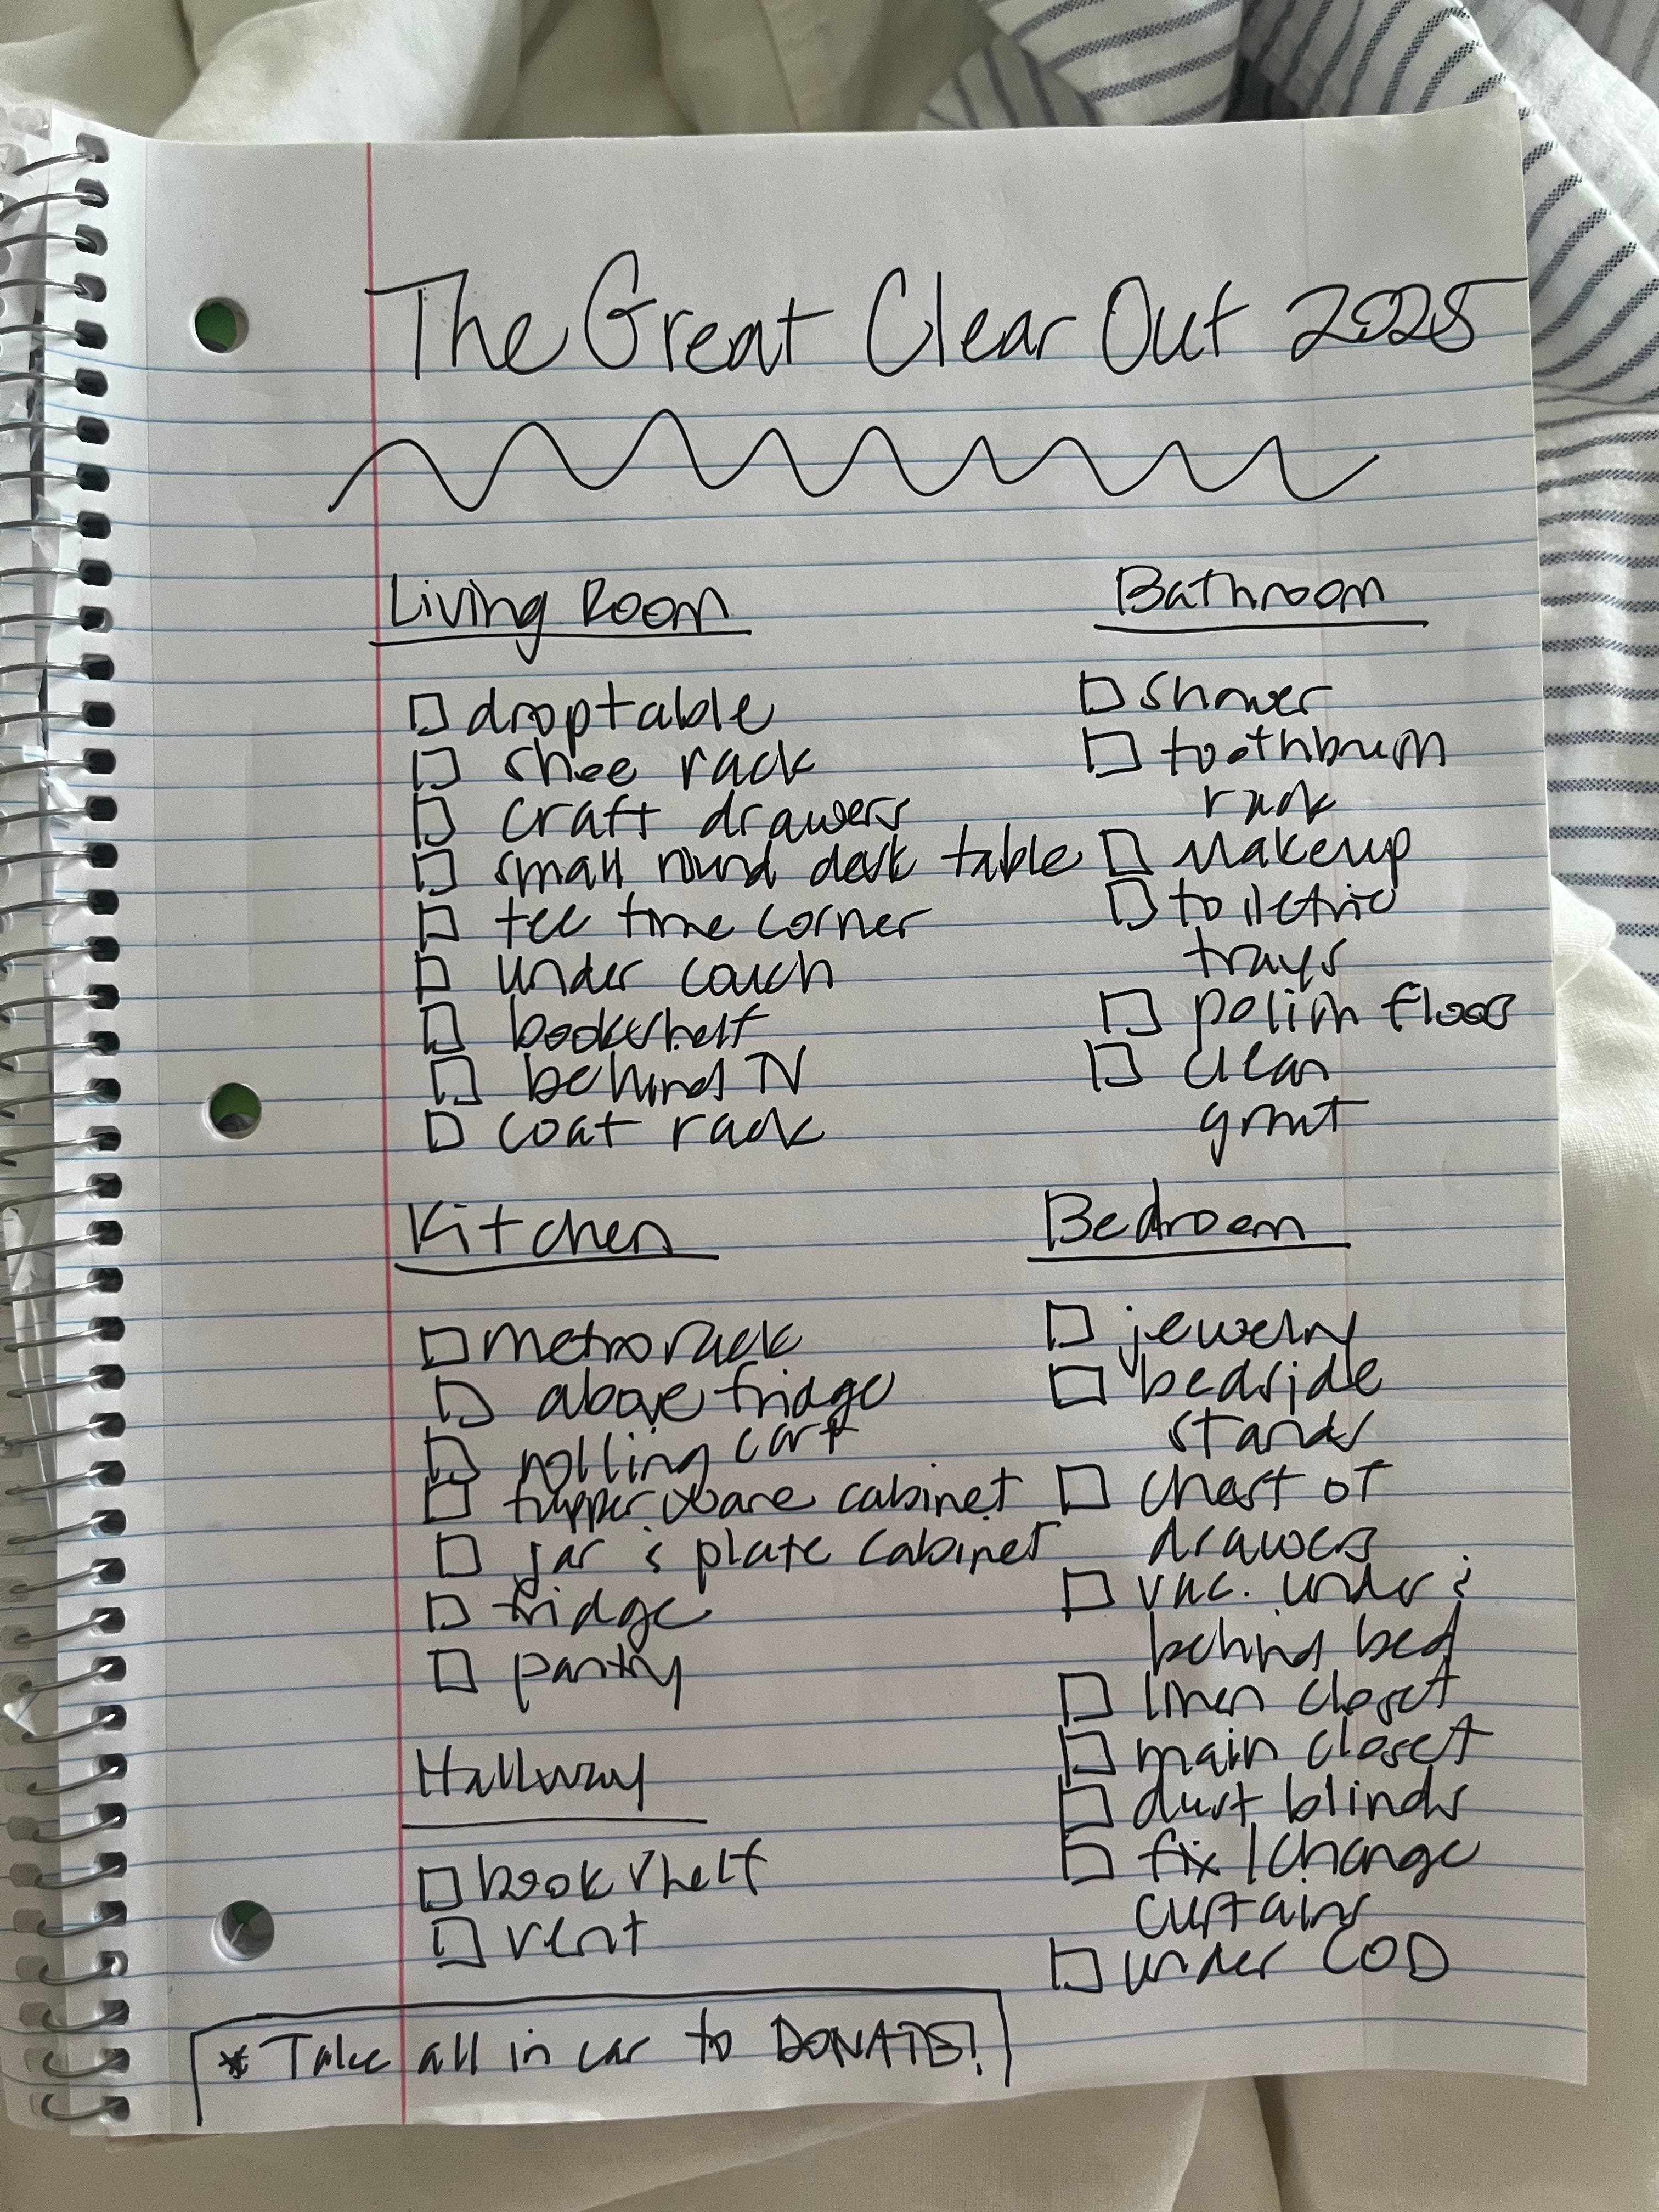 The Great Clear Out 2025
Living Room
droptable
shoe rack
craft drawers
small round desk table
tee time corner
under couch
bookshelf
behind TV
coat rack
Bathroom
shower
toothbrush
rack
makeup
toiletric
trays
polish floor
clean
grout
Kitchen
metro rack
above fridge
rolling cart
tupperware cabinet
jar & plate cabinet
fridge
pantry
Bedroom
jewelry
bedside
stands
chest of
drawers
vac. under &
behind bed
linen closet
main closet
dust blinds
fix/change
curtains
under COD
Hallway
bookshelf
vent
* Take all in car to DONATE!